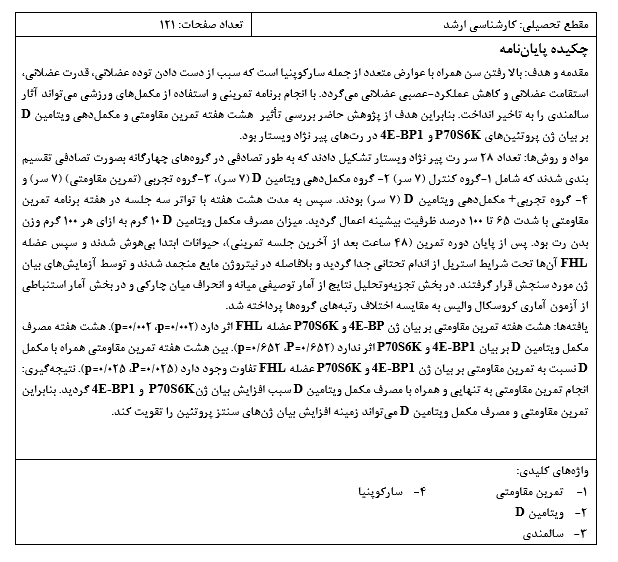 مقطع تحصیلی: کارشناسی ارشد
تعداد صفحات: ۱۲۱
چکیده پایان‌نامه
مقدمه و هدف: بالا رفتن سن همراه با عوارض متعدد از جمله سارکوپنیا است که سبب از دست دادن توده عضلانی، قدرت عضلانی،
استقامت عضلانی و کاهش عملکرد-عصبی عضلانی می‌گردد. با انجام برنامه تمرینی و استفاده از مکمل‌های ورزشی می‌تواند آثار
سالمندی را به تاخیر انداخت. بنابراین هدف از پژوهش حاضر بررسی تأثیر هشت هفته تمرین مقاومتی و مکمل‌دهی ویتامین D
بر بیان ژن پروتئین‌های P70S6K و 4E-BP1 در رت‌های پیر نژاد ویستار بود.
مواد و روش‌ها: تعداد ۲۸ سر رت پیر نژاد ویستار تشکیل دادند که به طور تصادفی در گروه‌های چهارگانه بصورت تصادفی تقسیم
بندی شدند که شامل ۱-گروه کنترل (۷ سر) ۲- گروه مکمل‌دهی ویتامین D (۷ سر)، ۳-گروه تجربی (تمرین مقاومتی) (۷ سر) و
۴- گروه تجربی+ مکمل‌دهی ویتامین D (۷ سر) بودند. سپس به مدت هشت هفته با تواتر سه جلسه در هفته برنامه تمرین
مقاومتی با شدت ۶۵ تا ۱۰۰ درصد ظرفیت بیشینه اعمال گردید. میزان مصرف مکمل ویتامین D ۱۰ گرم به ازای هر ۱۰۰ گرم وزن
بدن رت بود. پس از پایان دوره تمرین (۴۸ ساعت بعد از آخرین جلسه تمرینی)، حیوانات ابتدا بی‌هوش شدند و سپس عضله
FHL آن‌ها تحت شرایط استریل از اندام تحتانی جدا گردید و بلافاصله در نیتروژن مایع منجمد شدند و توسط آزمایش‌های بیان
ژن مورد سنجش قرار گفتند. در بخش تجزیه‌وتحلیل نتایج از آمار توصیفی میانه و انحراف میان چارکی و در بخش آمار استنباطی
از آزمون آماری کروسکال والیس به مقایسه اختلاف رتبه‌های گروه‌ها پرداخته شد.
یافته‌ها: هشت هفته تمرین مقاومتی بر بیان ژن 4E-BP و P70S6K عضله FHL اثر دارد (p=۰/۰۰۲، p=۰/۰۰۲). هشت هفته مصرف
مکمل ویتامین D بر بیان 4E-BP1 و P70S6K اثر ندارد (P=۰/۶۵۲، p=۰/۶۵۲). بین هشت هفته تمرین مقاومتی همراه با مکمل
D نسبت به تمرین مقاومتی بر بیان ژن 4E-BP1 و P70S6K عضله FHL تفاوت وجود دارد (P=۰/۰۲۵، p=۰/۰۲۵). نتیجه‌گیری:
انجام تمرین مقاومتی به تنهایی و همراه با مصرف مکمل ویتامین D سبب افزایش بیان ژن P70S6K و 4E-BP1 گردید. بنابراین
تمرین مقاومتی و مصرف مکمل ویتامین D می‌تواند زمینه افزایش بیان ژن‌های سنتز پروتئین را تقویت کند.
واژه‌های کلیدی:
۱- تمرین مقاومتی ۴- سارکوپنیا
۲- ویتامین D
۳- سالمندی